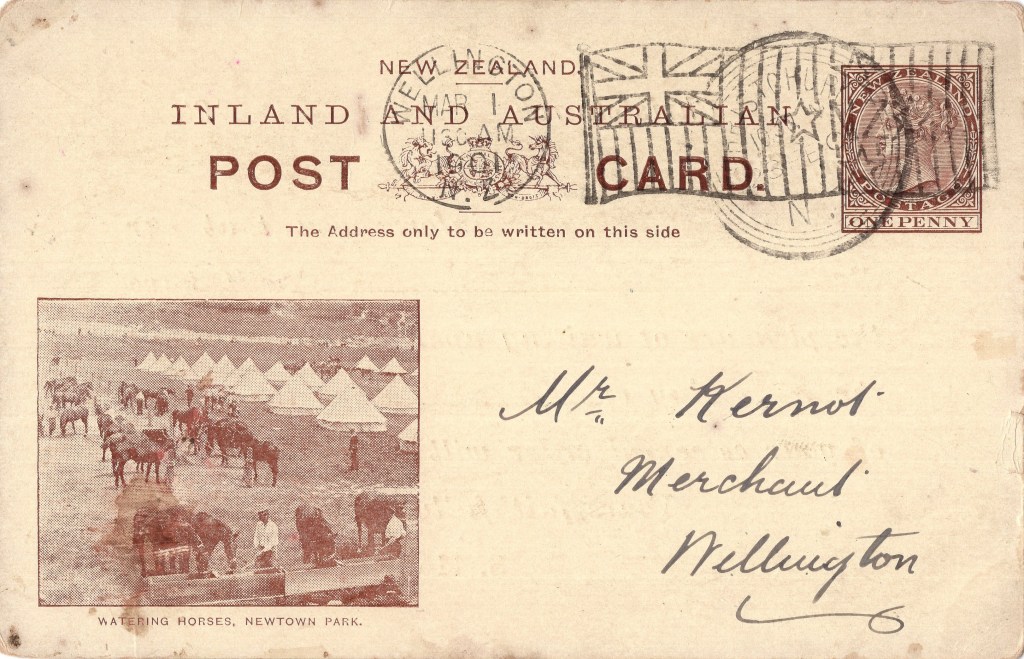 NEW ZEALAND.
INLAND AND AUSTRALIAN
POST CARD.
The Address only to be written on this side
WELLINGTON
MAR 1
1130 AM
1901
N.Z
NEW ZEALAND
POSTAGE
ONE PENNY
N.
Mr Kernot
Merchant
Wellington
WATERING HORSES, NEWTOWN PARK.